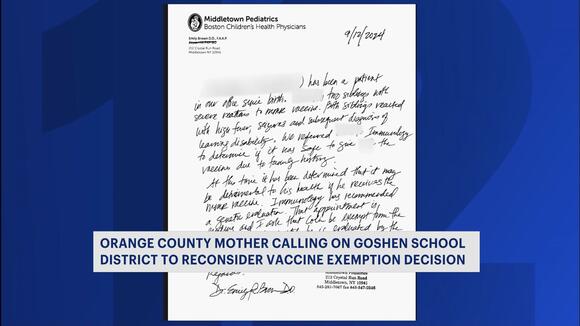 Middletown Pediatrics
Boston Children's Health Physicians
Emily Brown D.O., F.A.A.P.
212 Crystal Run Road
Middletown, NY 10941
9/12/2024
) has been a patient
in our office since birth. two siblings with
severe reactions to MMR vaccine. Both siblings reacted
with high fever, seizures and subsequent diagnosis of
learning disability. We referred Immunology
to determine if it was safe to give the
vaccine due to family history.
At this time it has been determined that it may
be detrimental to his health if he receives the
MMR vaccine. Immunology has recommended
a genetic evaluation. That appointment is
and I ask that be exempt from the
is evaluated by the
ORANGE COUNTY MOTHER CALLING ON GOSHEN SCHOOL
DISTRICT TO RECONSIDER VACCINE EXEMPTION DECISION
Middletown Pediatrics
212 Crystal Run Road
Middletown, NY 10941
Dr. Emily Brown DO